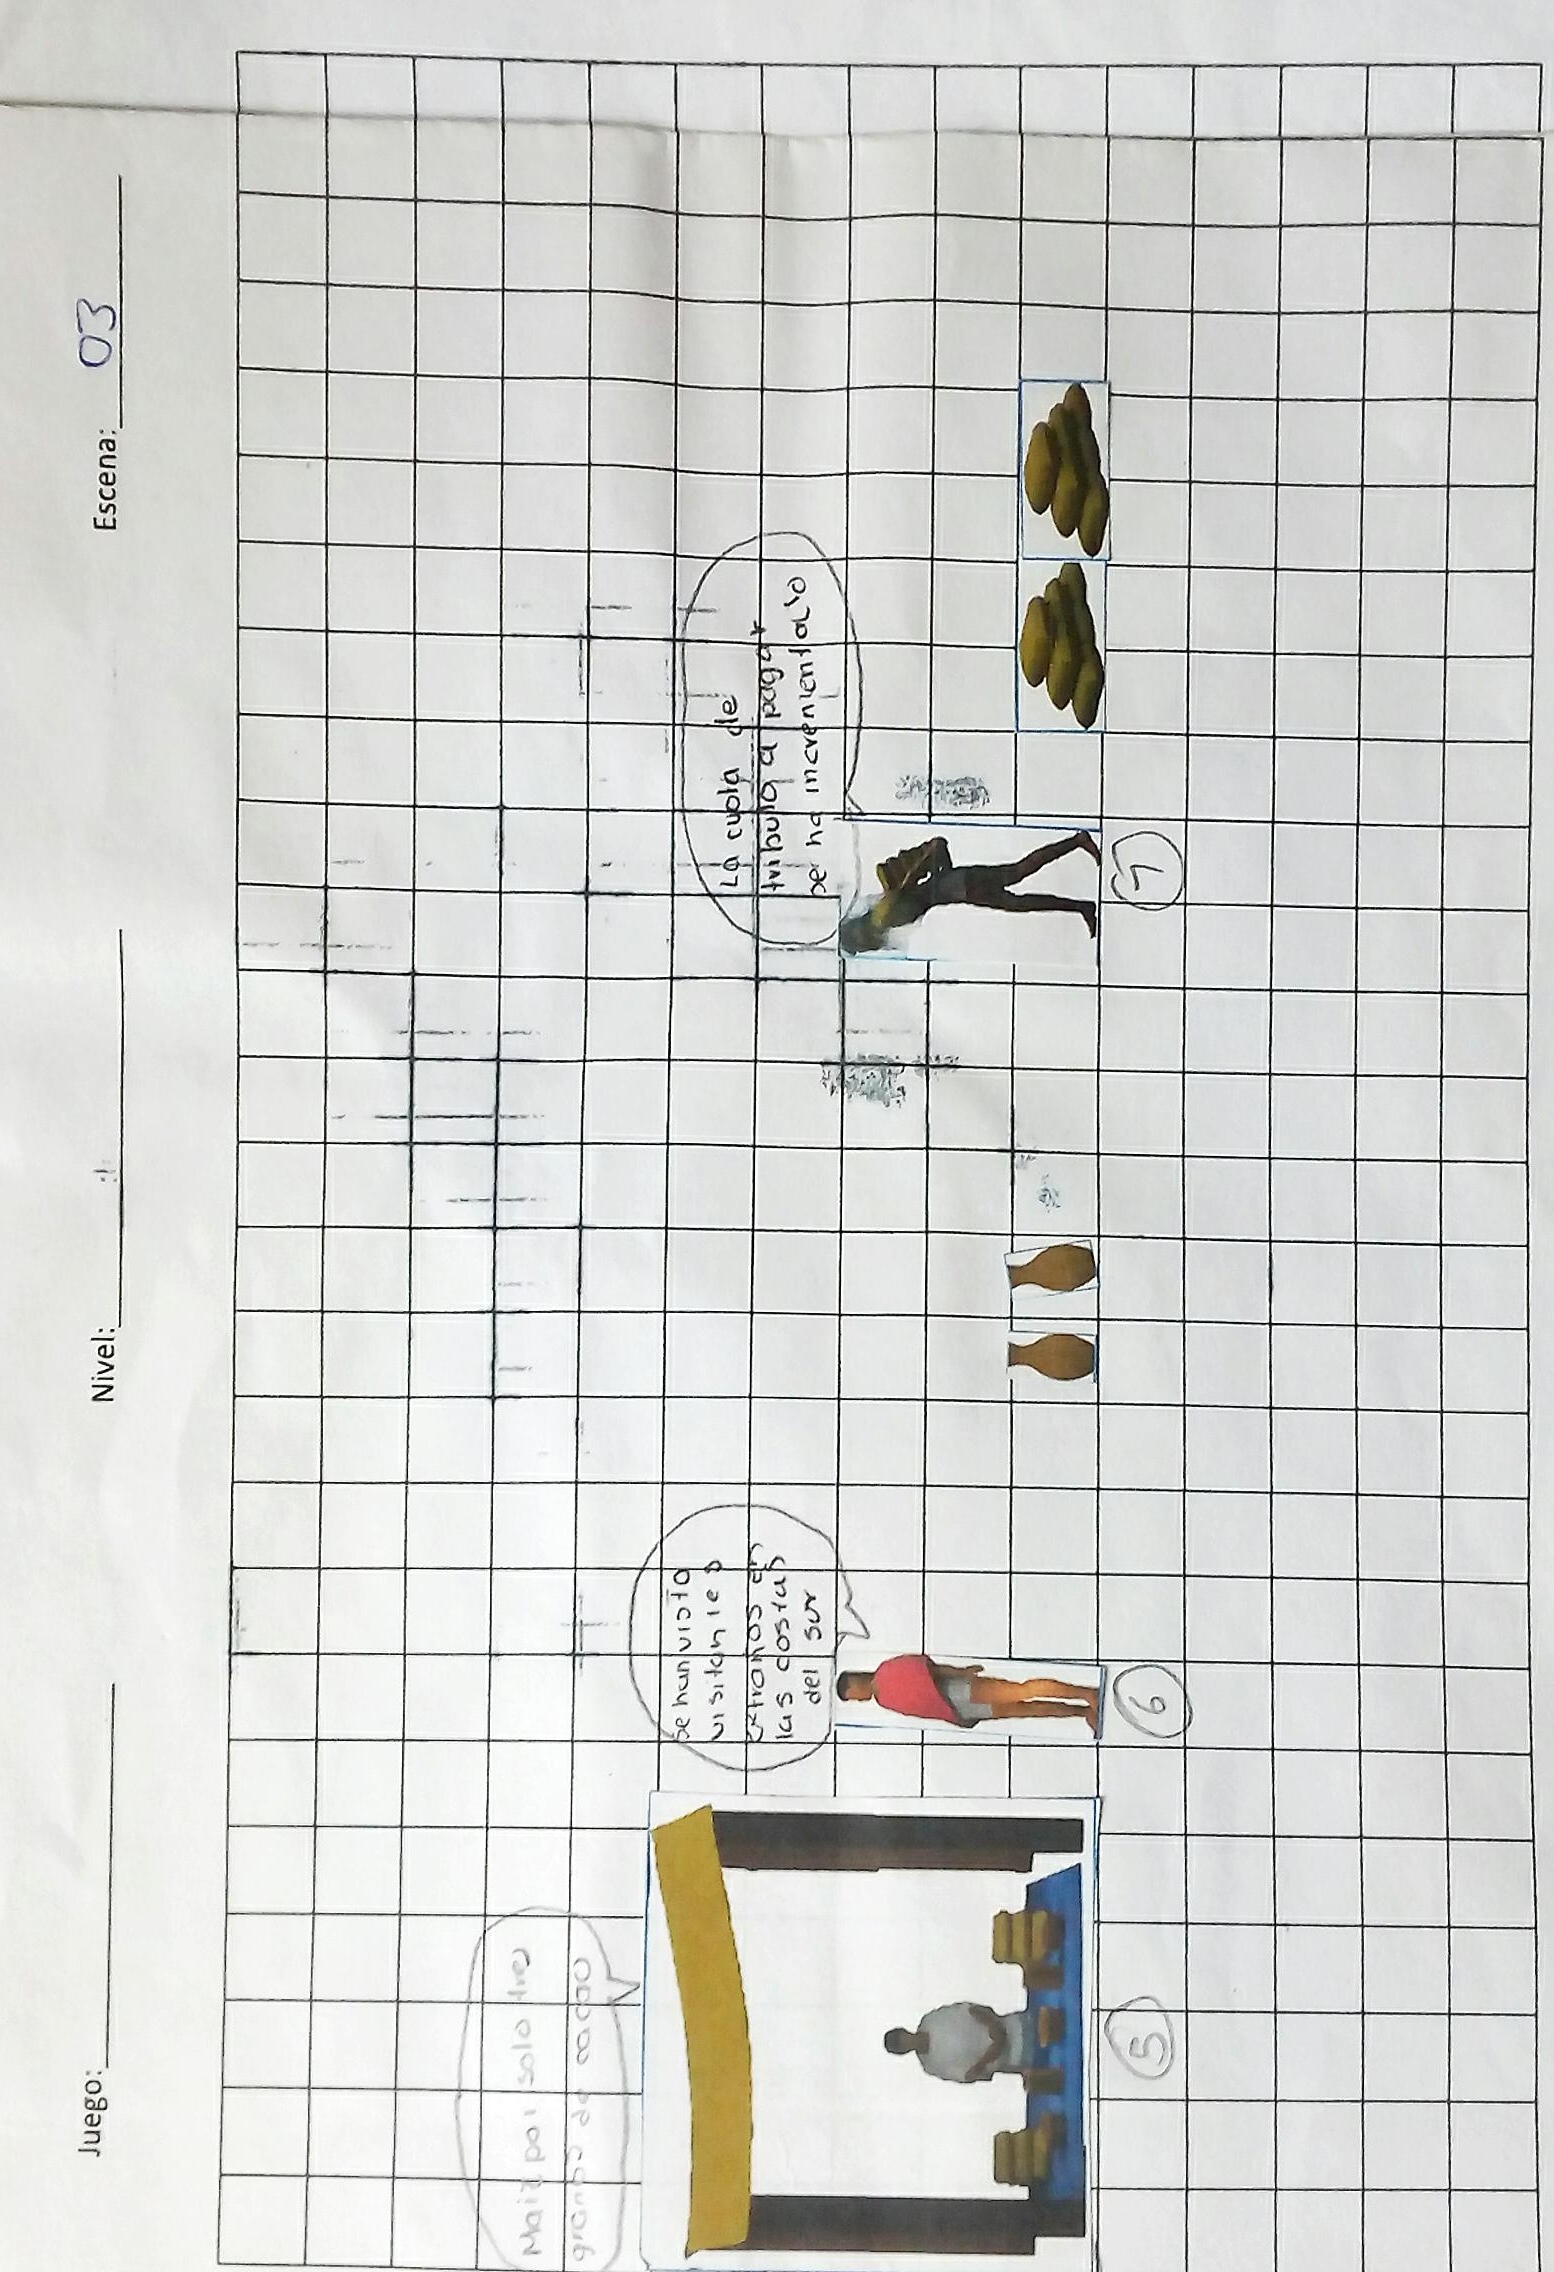 Juego:
Nivel:
Escena: 03
Maiz por solo tres
granos de cacao
Se han visto
visitantes
extraños en
las costas
del sur
La cuota de
tributo a pagar
se ha incrementado
5
6
7